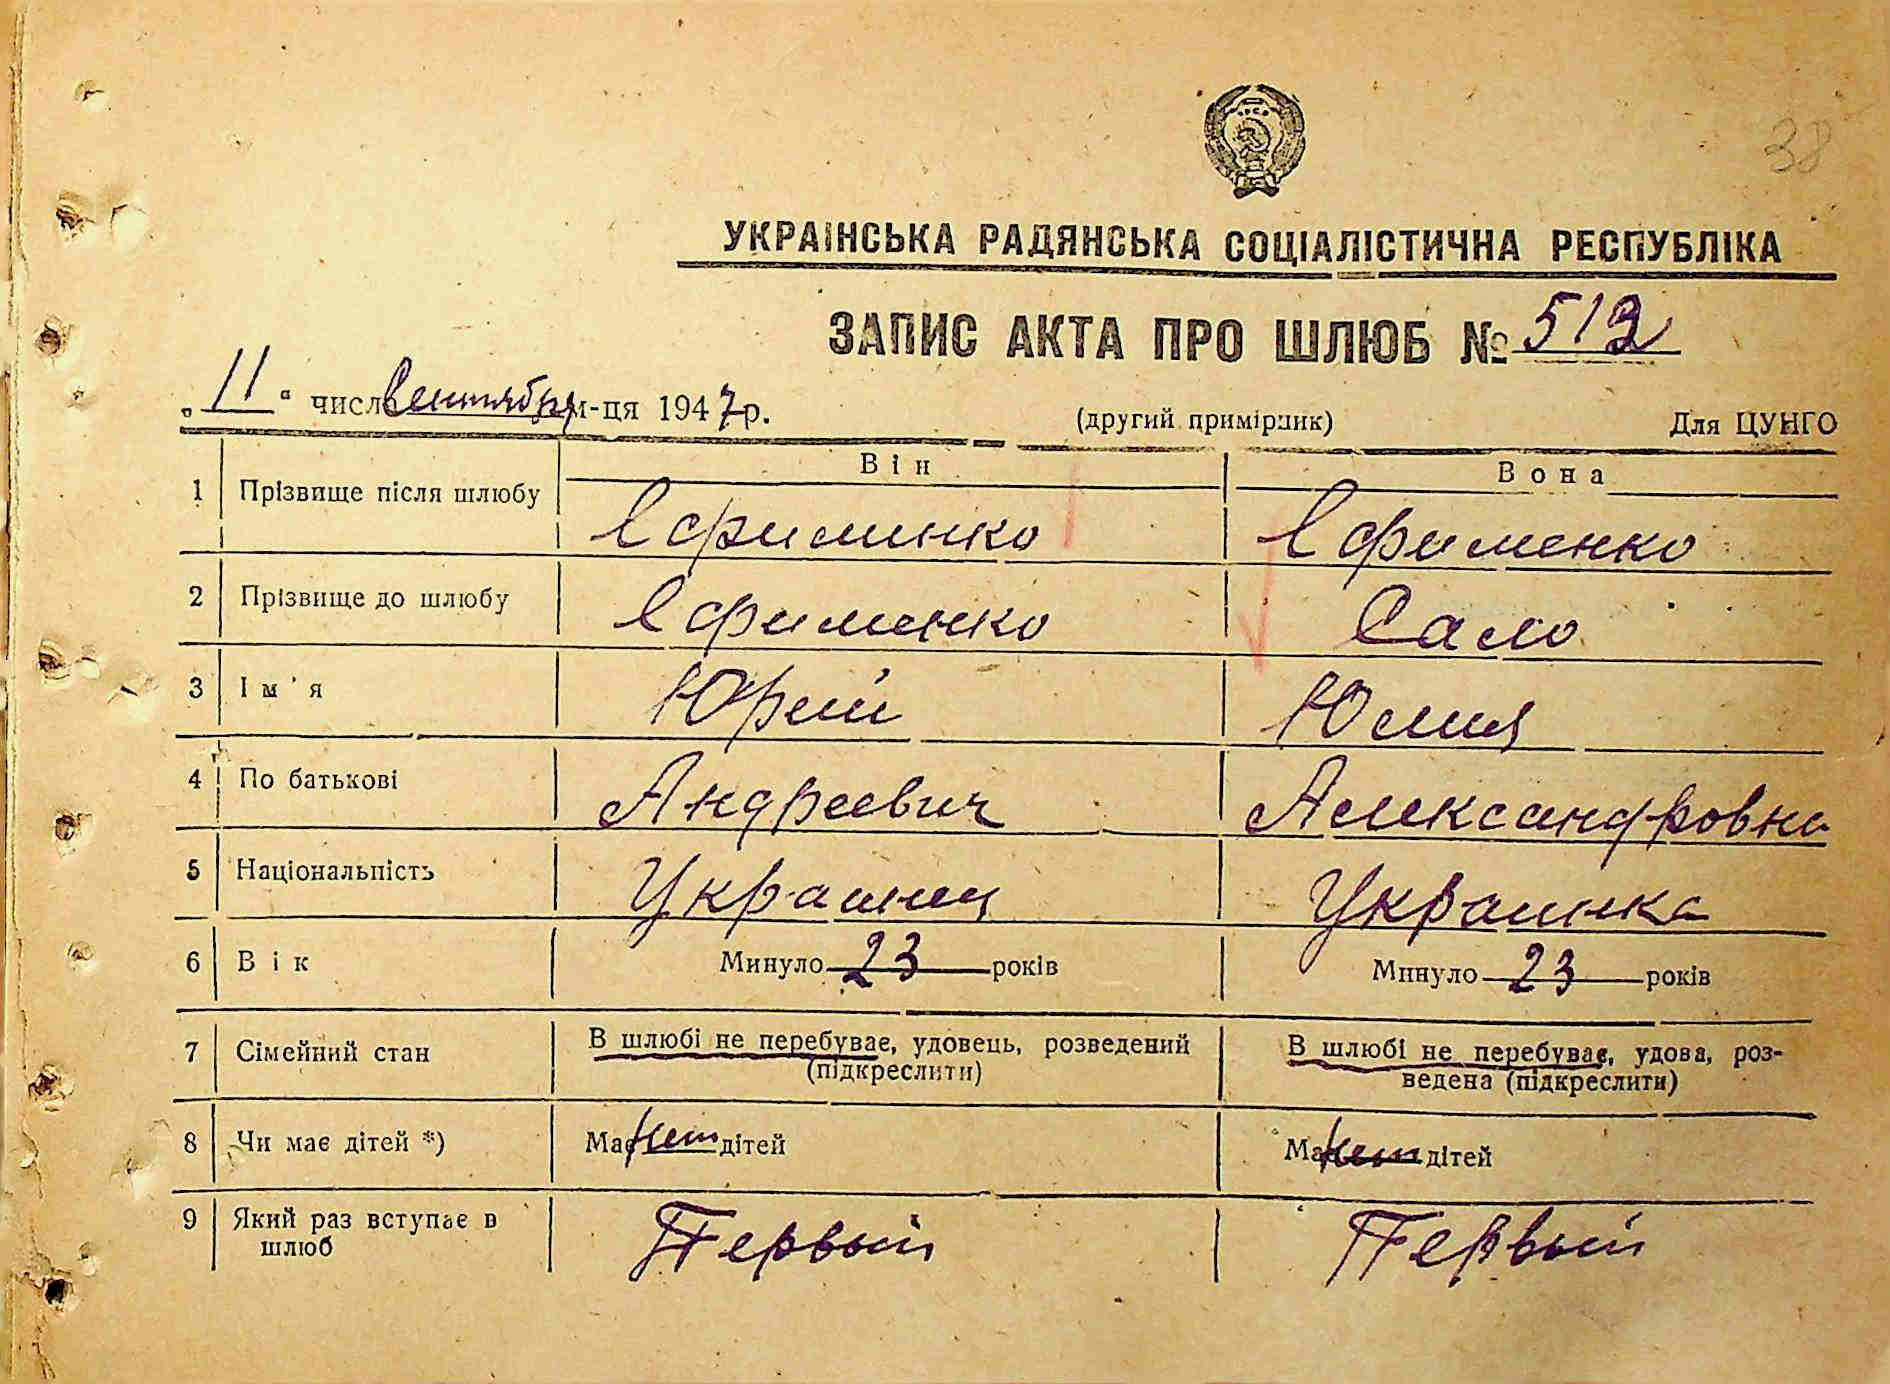 38
УКРАЇНСЬКА РАДЯНСЬКА СОЦІАЛІСТИЧНА РЕСПУБЛІКА
ЗАПИС АКТА ПРО ШЛЮБ № 512
„ 11 " числа сентября м-ця 1947 р. (другий примірник) Для ЦУНГО
Він Вона
1 Прізвище після шлюбу Ефименко Ефименко
2 Прізвище до шлюбу Ефименко Сало
3 Ім'я Юрий Юлия
4 По батькові Андреевич Александровна
5 Національність Украинец Украинка
6 Вік Минуло 23 років Минуло 23 років
7 Сімейний стан В шлюбі не перебуває, удовець, розведений (підкреслити) В шлюбі не перебуває, удова, роз-
ведена (підкреслити)
8 Чи має дітей *) Має нет дітей Має нет дітей
9 Який раз вступає в шлюб Первый Первый